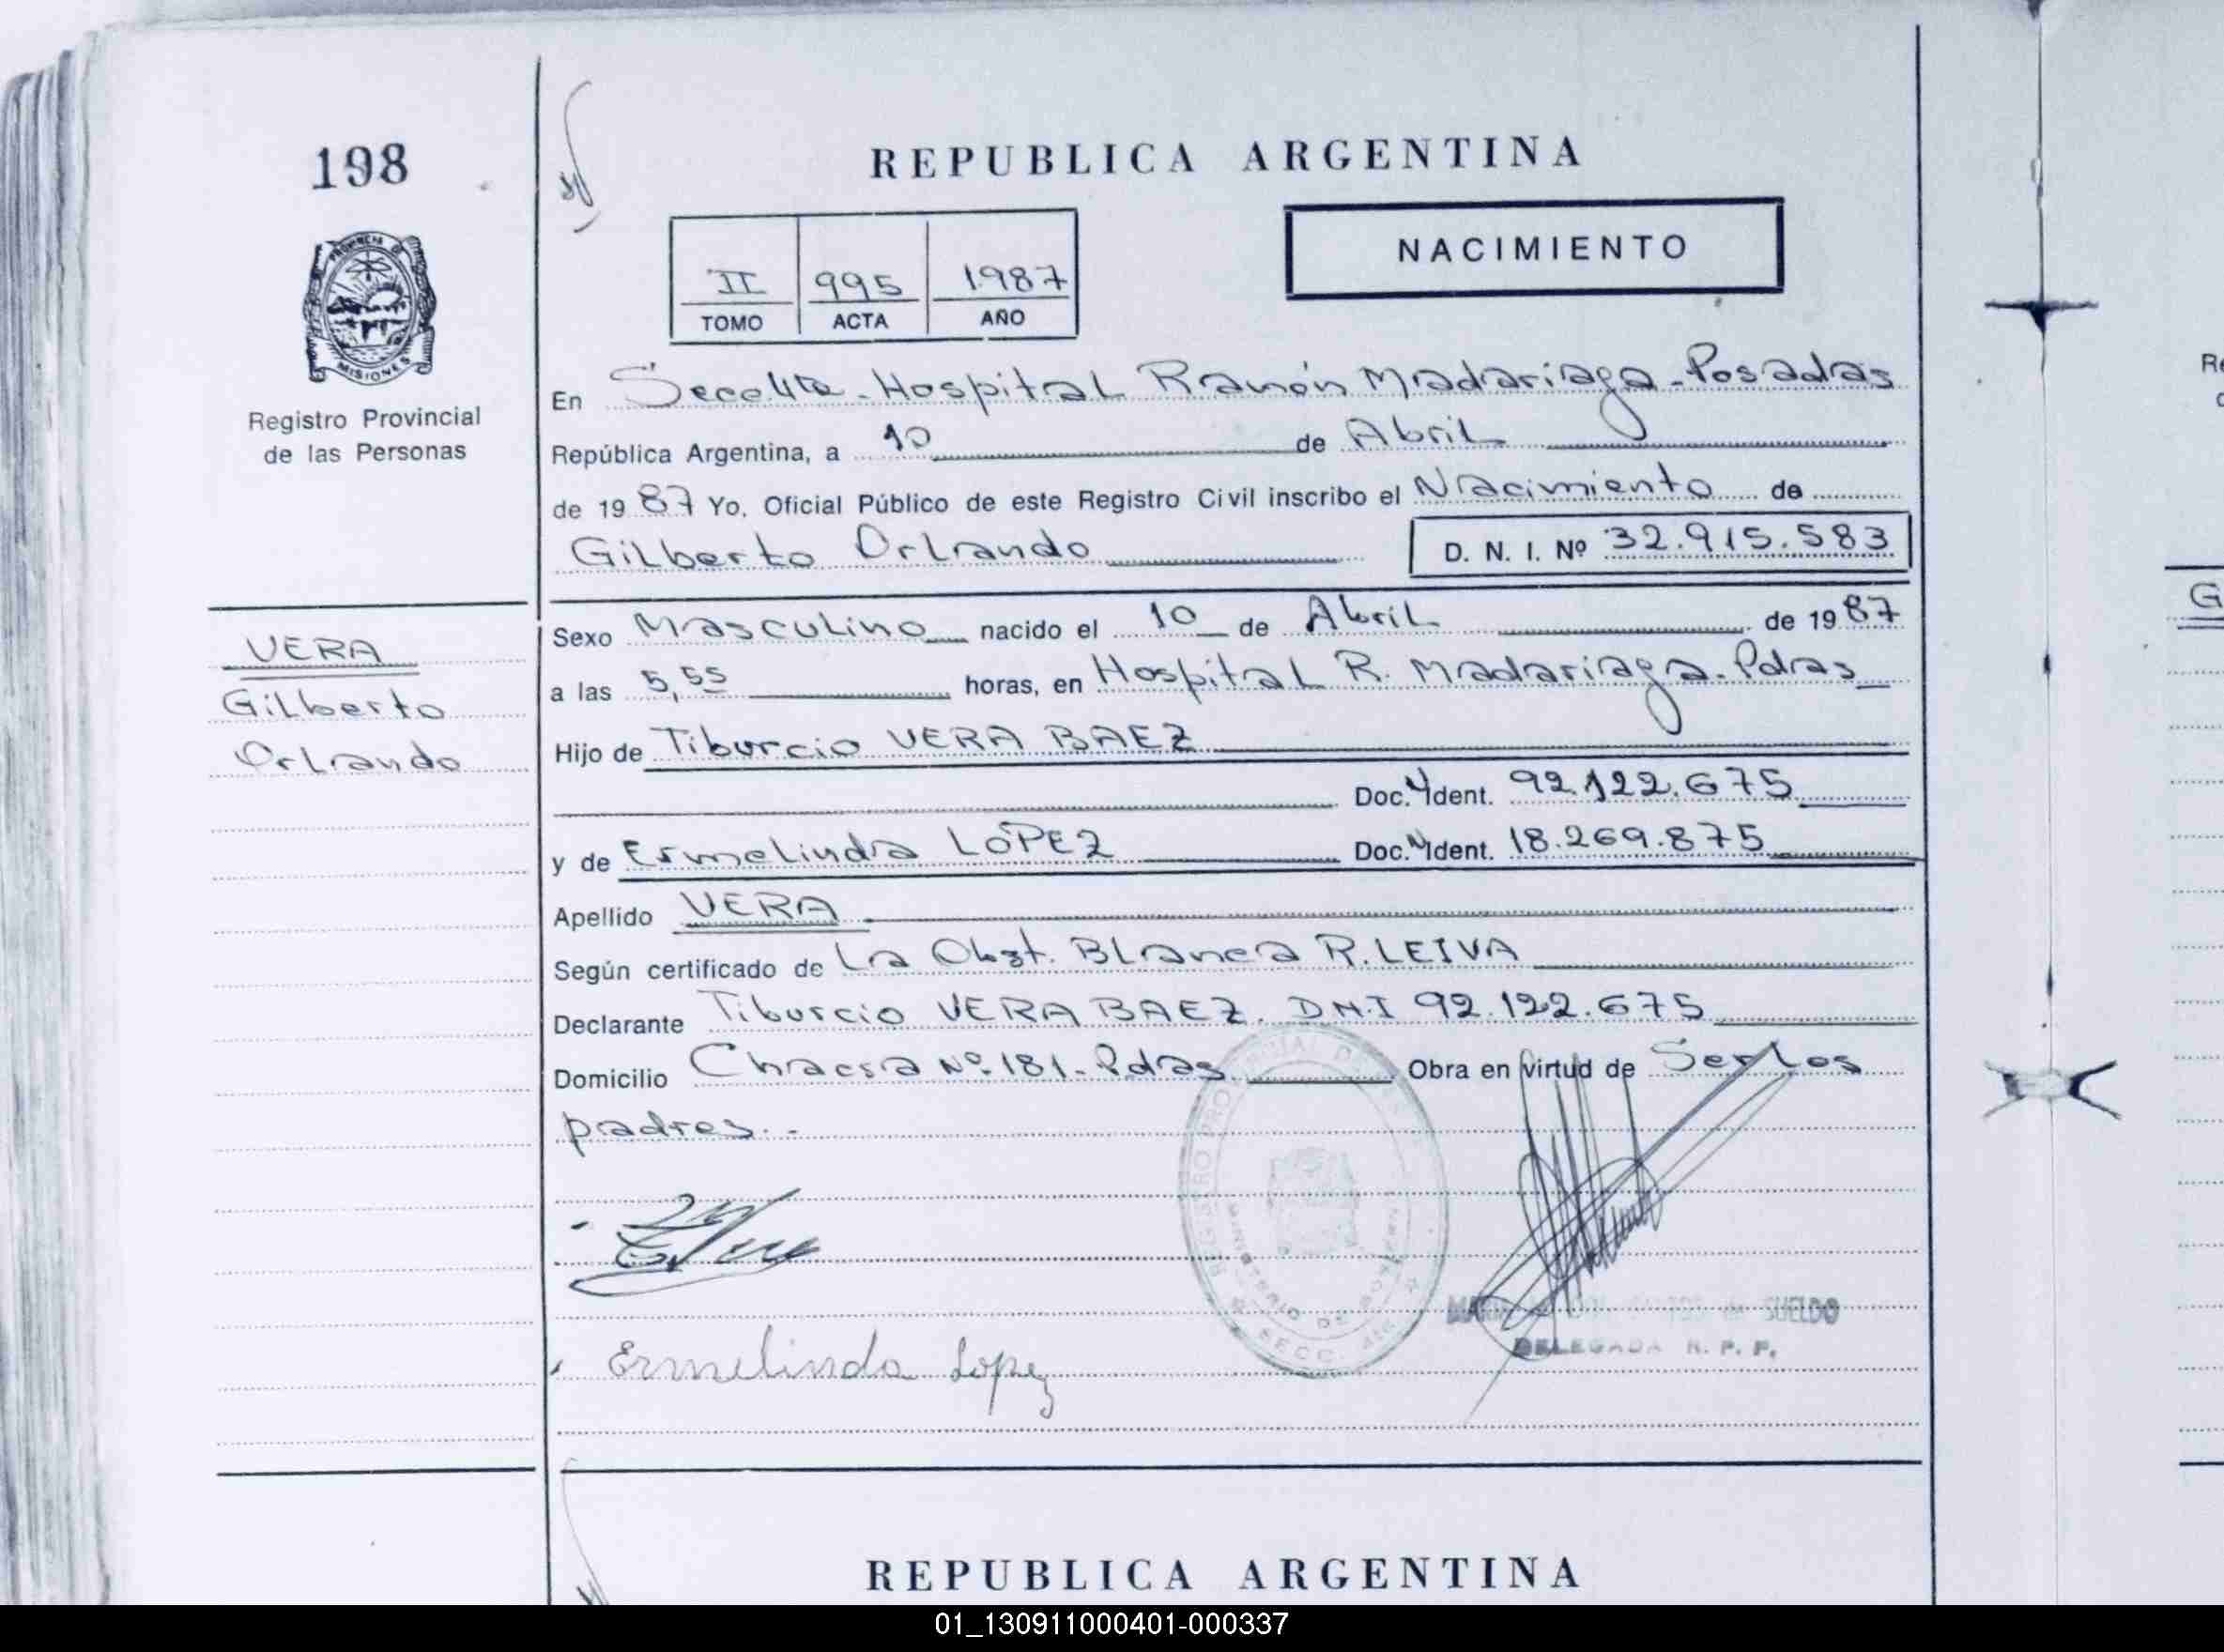 198
REPUBLICA ARGENTINA
NACIMIENTO
II 995 1987
TOMO ACTA AÑO
PROVINCIA DE
MISIONES
Registro Provincial
de las Personas
En Secc. 4ta - Hospital Ramón Madariaga - Posadas
República Argentina, a 10 de Abril
de 1987 Yo, Oficial Público de este Registro Civil inscribo el Nacimiento de
Gilberto Orlando D. N. I. Nº 32.915.583
VERA
Gilberto
Orlando
Sexo Masculino nacido el 10 de Abril de 1987
a las 5,55 horas, en Hospital R. Madariaga - Pdas
Hijo de Tiburcio VERA BAEZ
Doc. Ident. 92.122.675
y de Ermelinda LOPEZ Doc. Ident. 18.269.875
Apellido VERA
Según certificado de La Obst. Blanca R. LEIVA
Declarante Tiburcio VERA BAEZ. DNI 92.122.675
Domicilio Chacra Nº 181 - Pdas Obra en virtud de Ser los
padres. -
REGISTRO
MINISTERIO DE
SECC. 4ta
SUELDO
DELEGADA R. P. P.
Ermelinda Lopez
REPUBLICA ARGENTINA
G
01_130911000401-000337